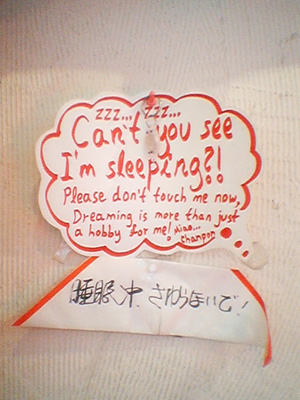 zzz... zzz...
Can't you see
I'm sleeping?!
Please don't touch me now,
Dreaming is more than just
a hobby for me! Miao...
Chanpon
睡眠中 さわらないで!